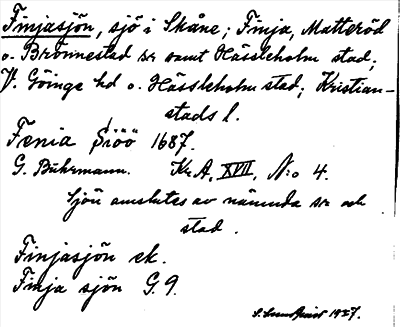 Finjasjön, sjö i Skåne; Finja, Matteröd
o. Brönnestad sn samt Hässleholm stad;
V. Göinge hd o. Hässleholm stad; Kristian-
stads l.
Fenia Siöö 1687.
G. Buhrmann. Kr. A. XVII, N:o 4.
Sjön omslutes av nämnda sn och
stad.
Finjasjön ek.
Finja sjön G. 9.
1927.